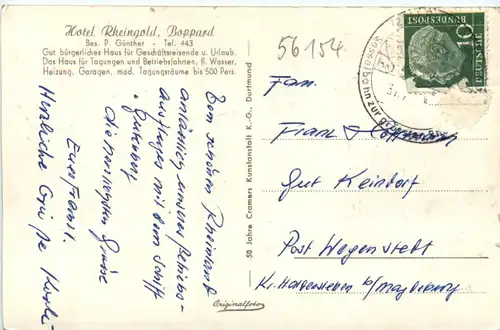 Hotel Rheingold, Boppard
Bes. P. Günther · Tel. 443
Gut bürgerliches Haus für Geschäftsreisende u. Urlaub.
Das Haus für Tagungen und Betriebsfahrten, fl. Wasser,
Heizung, Garagen, mod. Tagungsräume bis 500 Pers.
Vom schönen Rheinland
anlässlich unseres Betriebs-
ausfluges mit dem Schiff
die herzlichsten Grüsse
Herzliche Grüße
50 Jahre Cramers Kunstanstalt K.-G., Dortmund
Originalfotos
56154
DEUTSCHE
BUNDESPOST
10
Sesselbahn zur
Fam.
Franz
Gut Keindorf
Post Wegenstedt
Kr. Haldensleben b/Magdeburg